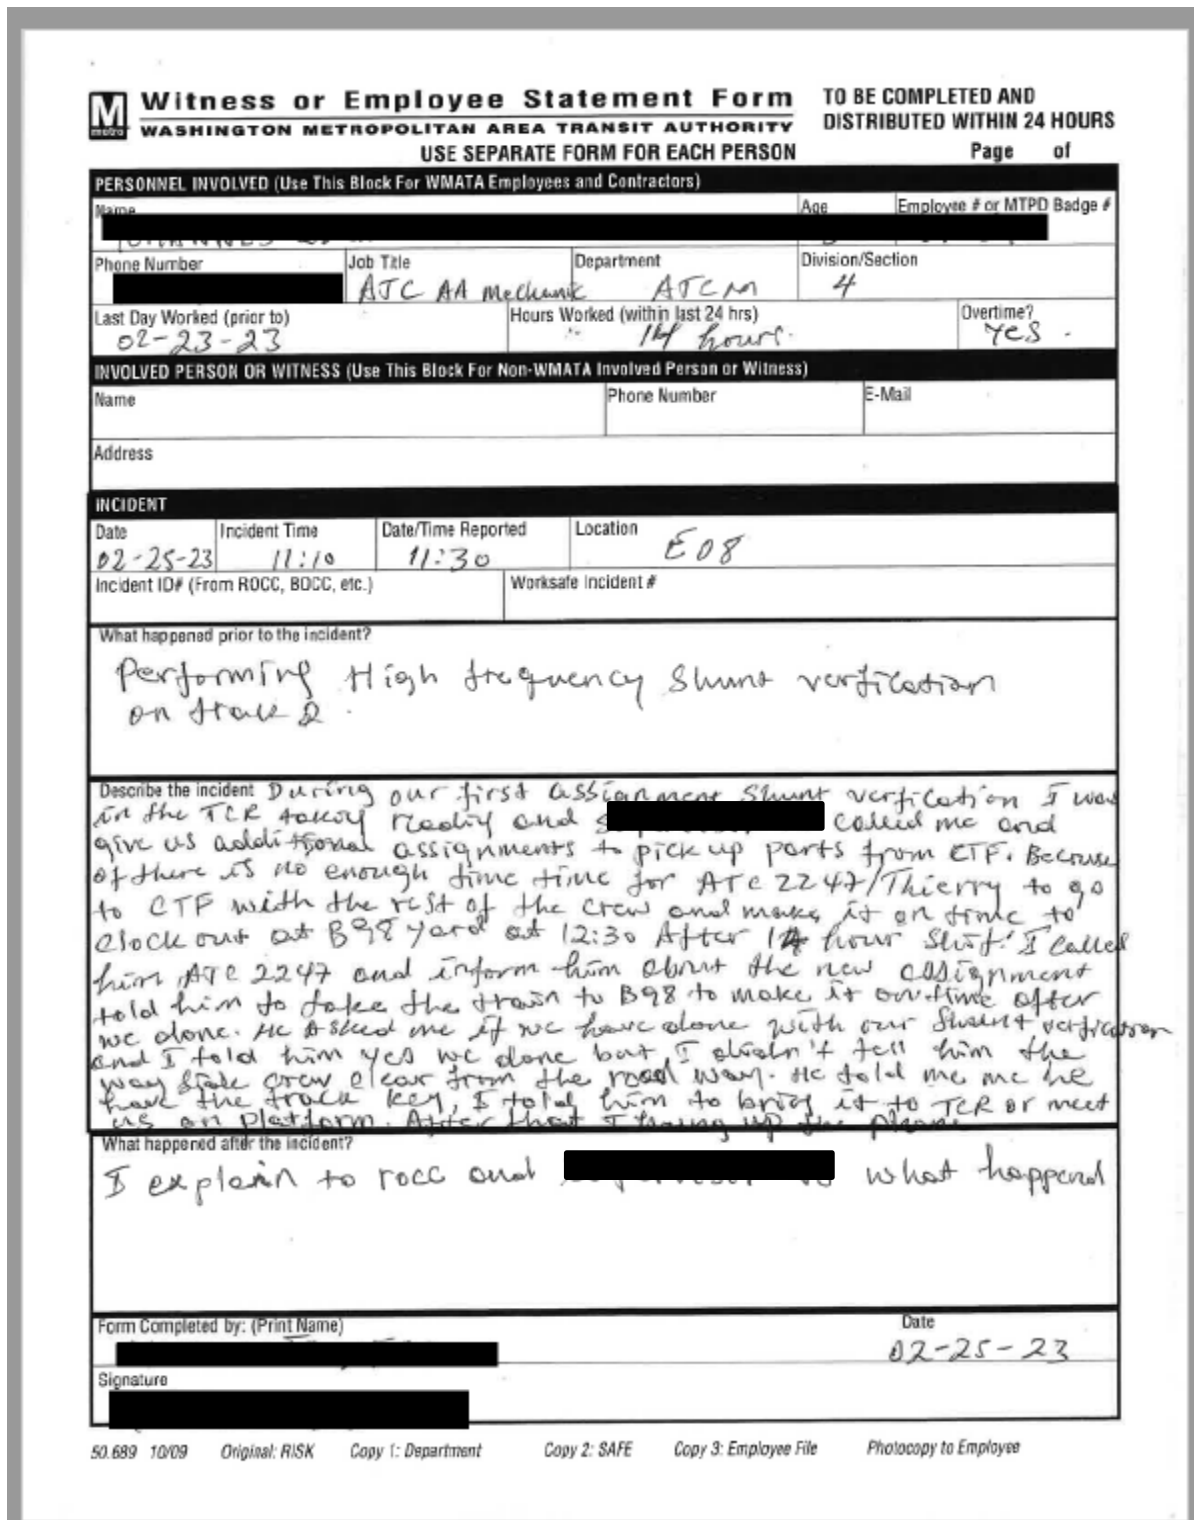 M
metro
Witness or Employee Statement Form
WASHINGTON METROPOLITAN AREA TRANSIT AUTHORITY
TO BE COMPLETED AND
DISTRIBUTED WITHIN 24 HOURS
USE SEPARATE FORM FOR EACH PERSON
Page of
PERSONNEL INVOLVED (Use This Block For WMATA Employees and Contractors)
Name Age Employee # or MTPD Badge #
Phone Number Job Title Department Division/Section
ATC AA Mechanik ATCM 4
Last Day Worked (prior to) Hours Worked (within last 24 hrs) Overtime?
02-23-23 14 hours. Yes.
INVOLVED PERSON OR WITNESS (Use This Block For Non-WMATA Involved Person or Witness)
Name Phone Number E-Mail
Address
INCIDENT
Date Incident Time Date/Time Reported Location
02-25-23 11:10 11:30 E08
Incident ID# (From ROCC, BOCC, etc.) Worksafe Incident #
What happened prior to the incident?
Performing High frequency Shunt verfication
on track 2.
Describe the incident During our first assignment Shunt verfication I was
in the TCR taking readig and called me and
give us additional assignments to pick up parts from CTF. Because
of there is no enough time time for ATC 2247/Thierry to go
to CTF with the rest of the crew and make it on time to
clock out at B98 yard at 12:30 After 14 hour Shift. I called
him ATC 2247 and inform him about the new assignment
told him to take the train to B98 to make it on-time after
we done. He Asked me if we have done with our Shunt verfication
and I told him yes we done but I didn't tell him the
way side crew clear from the road way. He told me me he
have the track key, I told him to bring it to TCR or meet
us on Platform. After that I hung up the phone
What happened after the incident?
I explain to rocc and what happend
Form Completed by: (Print Name) Date
02-25-23
Signature
50.689 10/09 Original: RISK Copy 1: Department Copy 2: SAFE Copy 3: Employee File Photocopy to Employee